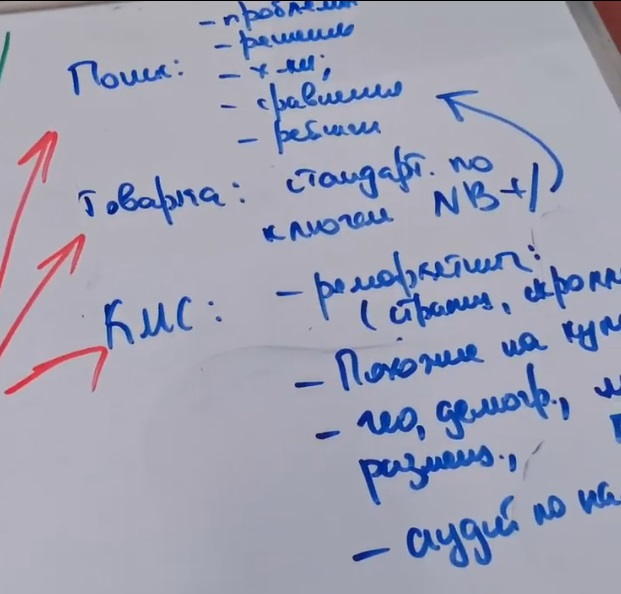 - проблемы
- решения
Поиск: - х-ки;
- сравнения
- рейтинг
Товарка: стандарт. по
ключам NB+/
КМС: - ремаркетинг:
(страниц, скролл
- Похожие на куп
- гео, демогр.,
размещ.,
- аудит по на